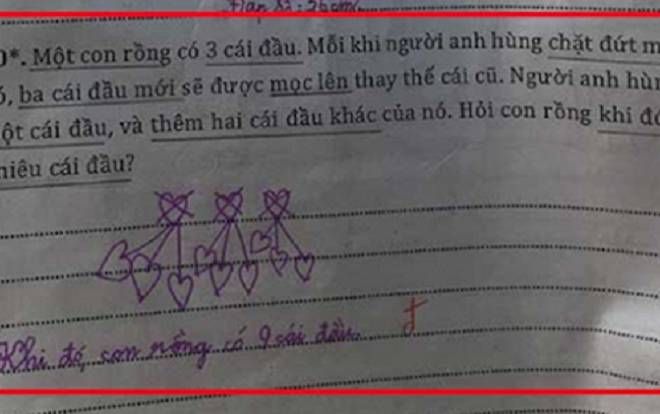 Một con rồng có 3 cái đầu. Mỗi khi người anh hùng chặt đứt
ba cái đầu mới sẽ được mọc lên thay thế cái cũ. Người anh
cái đầu, và thêm hai cái đầu khác của nó. Hỏi con rồng khi
cái đầu?
Khi đó, con rồng có 9 cái đầu.